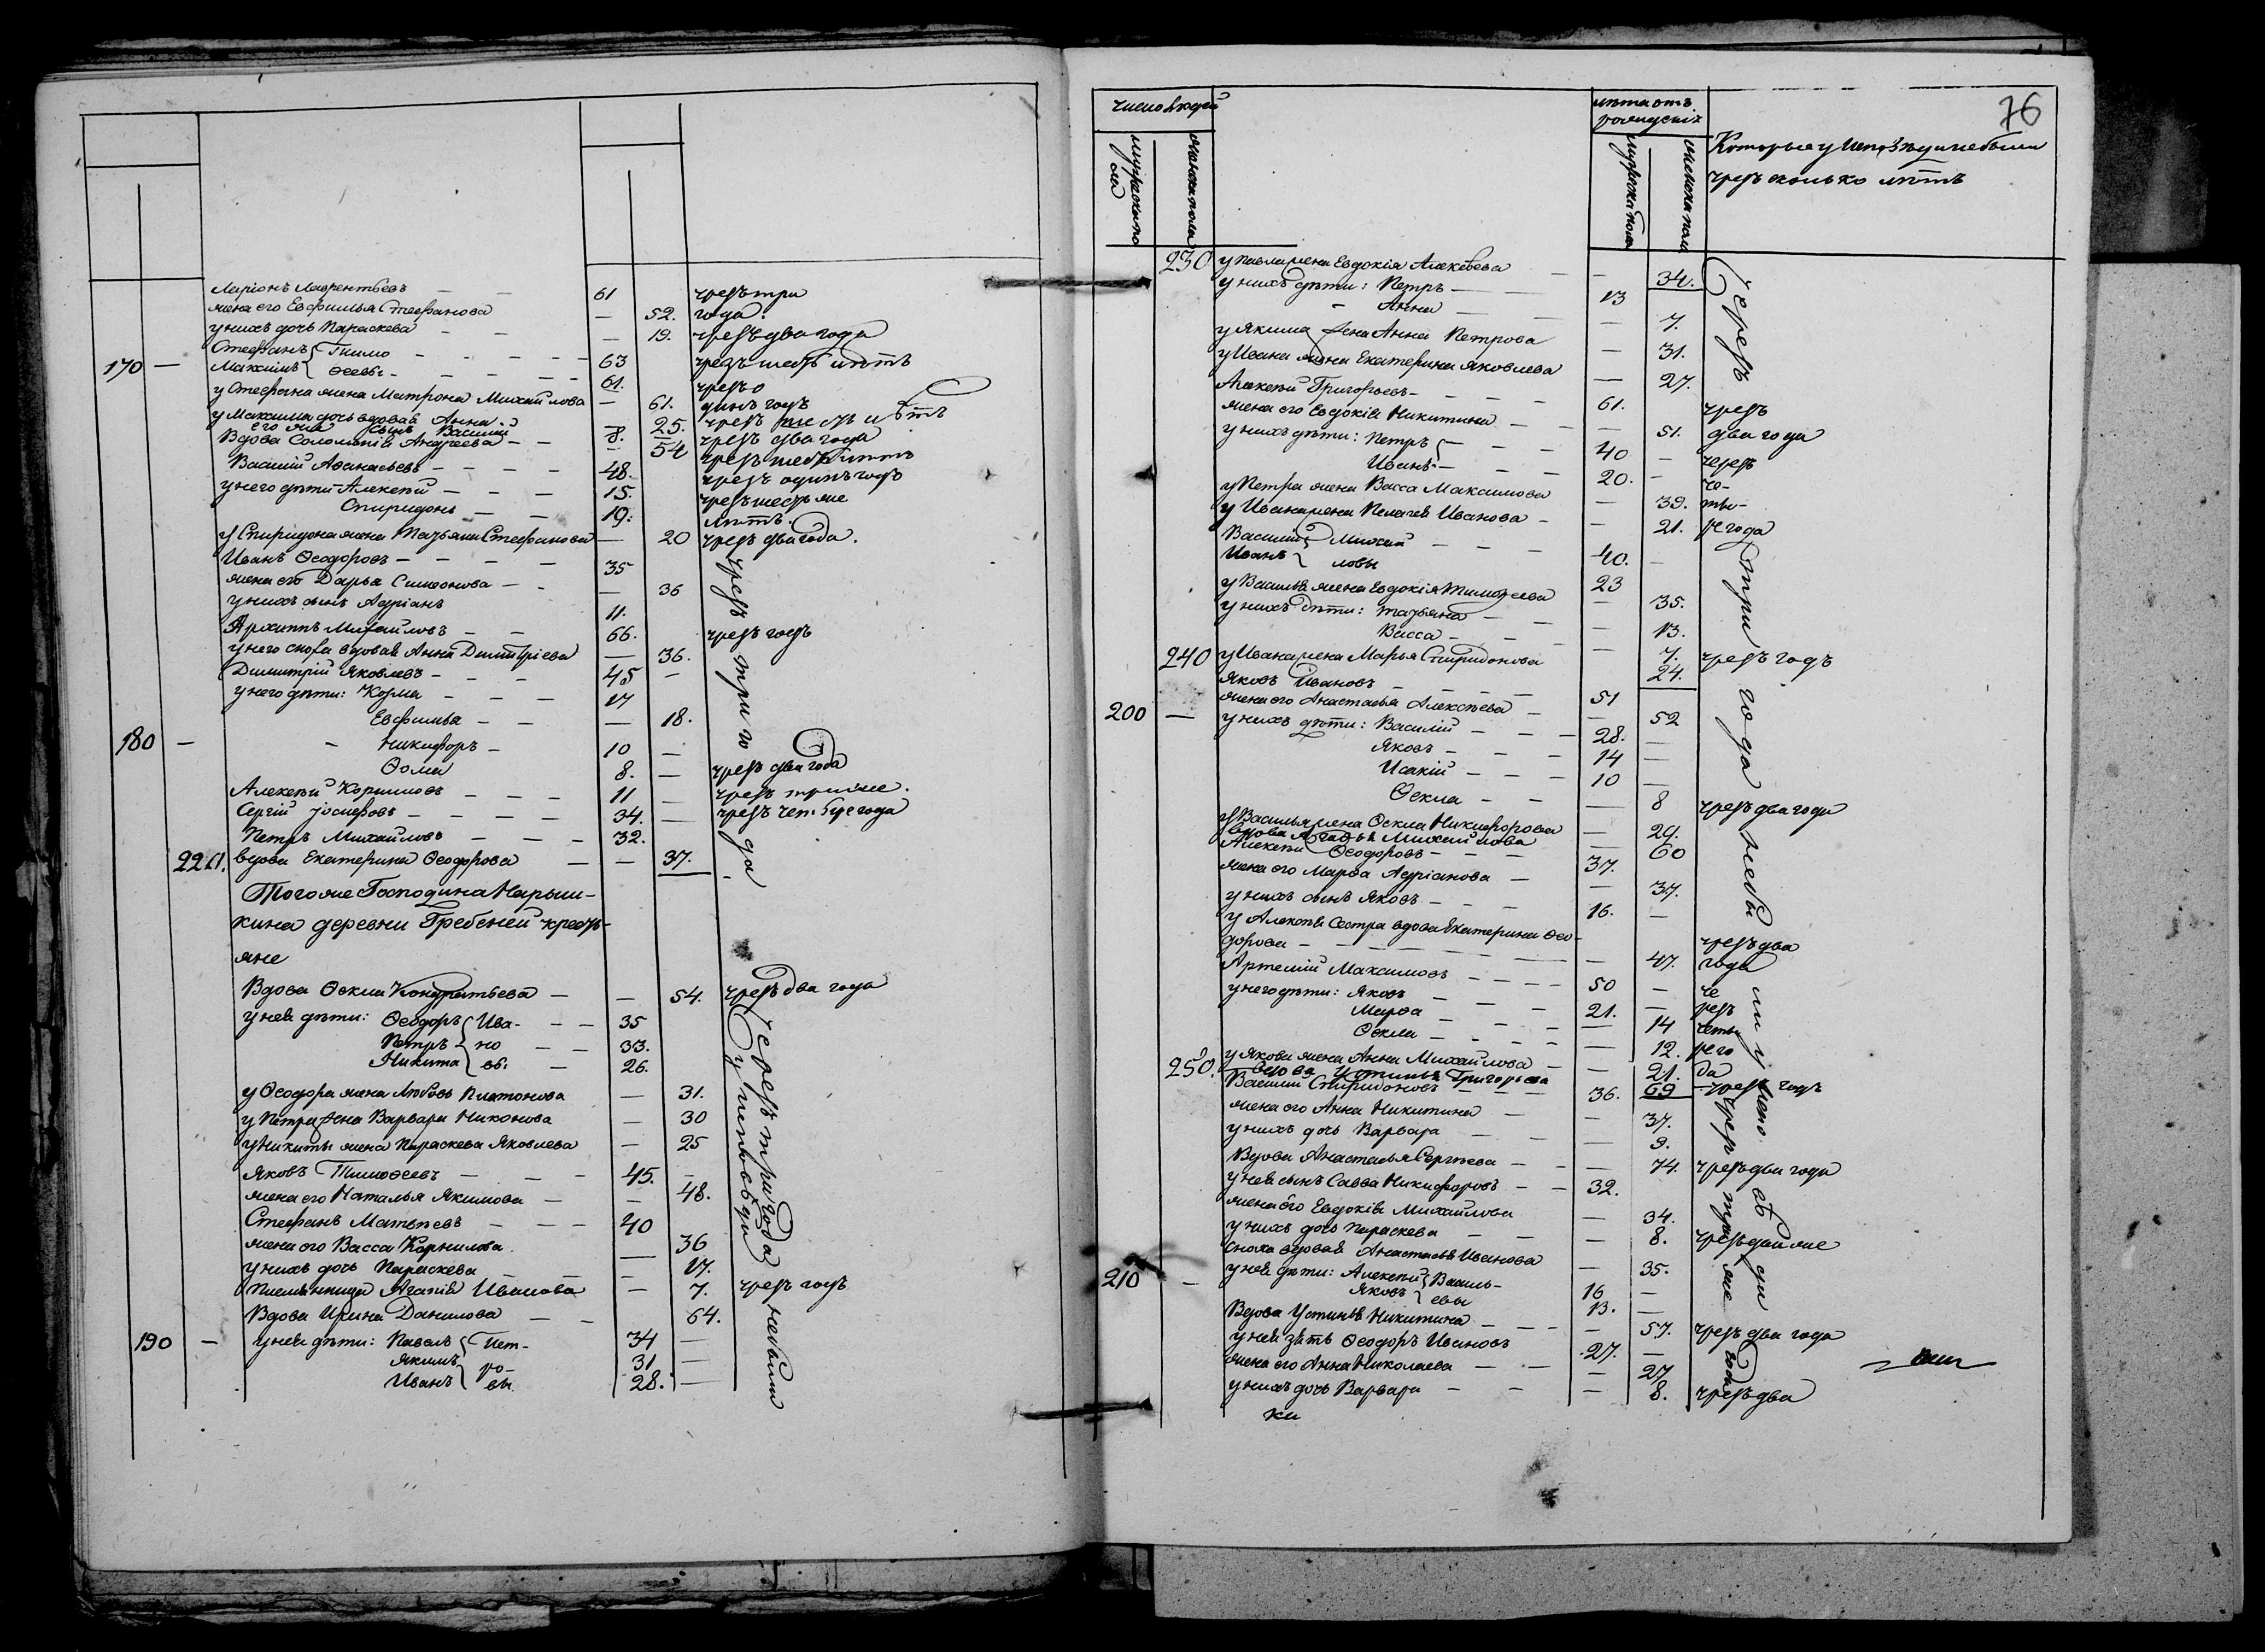 Ларіонъ Лаврентьевъ — — 61 чрезъ три
жена его Евфимья Стефанова — 52. года.
у нихъ дочь Параскева — — — 19. чрезъ два года
Стефанъ { Тимо — — — 63 чрезъ шесть лѣтъ
170 — Максимъ { ѳеевы — — — 61. чрезъ о
у Стефана жена Матрона Михайлова — 61. динъ годъ
у Максима дочь вдовая Анна — 25. чрезъ шесть лѣтъ
его же сынъ Василій 8. — чрезъ два года
Вдова Соломонія Андреева — — 54 чрезъ шесть лѣтъ
Василій Аѳанасьевъ — — — 48. чрезъ одинъ годъ
у него дѣти Алексѣй — — — 15. чрезъ шесть же
Спиридонъ — — 19. лѣтъ.
у Спиридона жена Татьяна Стефанова — 20 чрезъ два года.
Иванъ Ѳеодоровъ — — — 35
жена его Дарья Симеонова — — 36
у нихъ сынъ Адріанъ 11.
Архиппъ Михайловъ — — 66. чрезъ годъ
у него сноха вдовая Анна Димитріева — 36.
Димитрій Яковлевъ — — — 45 —
у него дѣти: Козма — — — 17
Евфимья — — — 18.
180 — Никифоръ — 10 —
Ѳома 8. — чрезъ два года
Алексѣй Корниловъ — — — 11 — чрезъ три же.
Сергій Іосифовъ — — — — 34. — чрезъ четыре года
Петръ Михайловъ — — — 32.
220. вдова Екатерина Ѳеодорова — — 37.
чрезъ три года
Того же Господина Нарыш-
кина деревни Гребеней крестья-
яне
Вдова Ѳекла Кондратьева — — 54. чрезъ два года
у нея дѣти: Ѳеодоръ { Ива- — — 35
Петръ { но — — 33.
Никита { вы. — 26.
у Ѳеодора жена Любовь Платонова — 31.
у Петра жена Варвара Никонова — 30
у Никиты жена Параскева Яковлева — 25
Яковъ Тимоѳеевъ — — — 45. —
жена его Наталья Якимова — — 48.
Стефанъ Матвѣевъ — — — 40
жена его Васса Корнилова. — 36
у нихъ дочь Параскева — 17.
Племянница Агапія Иванова — 7. чрезъ годъ
Вдова Ирина Данилова — — 64.
190 — у нея дѣти: Павелъ { Пет- 34 —
Якимъ { ро- 31 —
Иванъ { вы 28. —
Черезъ три года
у исповѣди
небыли
76
число людей
мужеска по
ла
женска пола
лѣта отъ
рожденія
мужеска пола
женска пола
Которые у Исповѣди небыли
чрезъ сколько лѣтъ
230 у Павла жена Евдокія Алексѣева — — 34.
у нихъ дѣти: Петръ — — 13
— Анна — — 7.
у Якима жена Анна Петрова — 31.
у Ивана жена Екатерина Яковлева — 27.
Алексѣй Григорьевъ — — — 61. чрезъ
жена его Евдокія Никитина — — 51. два года
у нихъ дѣти: Петръ { — — — 40 — черезъ
Иванъ. — — — 20. — че-
у Петра жена Васса Максимова — 39. ты-
у Ивана жена Пелагея Иванова — — 21. ре года
Василій { Михай — — — 40. —
Иванъ { ловы 23
у Василья жена Евдокія Тимоѳеева — 35.
у нихъ дѣти: Татьяна — — 13.
Васса — — — 7.
240 у Ивана жена Марья Спиридонова 24. чрезъ годъ
Яковъ Ивановъ — — — 51
200 — жена его Анастасья Алексѣева — — 52
у нихъ дѣти: Василій — — — 28. —
Яковъ — — — 14 —
Исакій — — — 10 —
Ѳекла — — — 8 чрезъ два года
у Василья жена Ѳекла Никифорова — 29.
вдова Агафья Михайлова — 60
Алексѣй Ѳеодоровъ — — — 37.
жена его Марѳа Адріанова — — 37.
у нихъ сынъ Яковъ — — — 16. —
у Алексѣя Сестра вдова Екатерина Ѳео-
дорова — — — — — 47. чрезъ два года
Артемій Максимовъ — — — — 50 — че
у него дѣти: Яковъ — — — 21. — резъ
Марѳа — — — — 14 четы
Ѳекла — — — — 12. ре го
у Якова жена Анна Михайлова — — 21. да
250. вдова Устинья Григорьева 69 чрезъ годъ
Василій Спиридоновъ — — — 36.
жена его Анна Никитина — — 37.
у нихъ дочь Варвара — — — 9.
Вдова Анастасья Сергѣева — — — 74. чрезъ два года
у нея сынъ Савва Никифоровъ — — 32.
жена его Евдокія Михайлова — 34.
у нихъ дочь Параскева — — — 8. чрезъ два же
сноха вдовая Анастасья Иванова — 35.
210 — у нея дѣти: Алексѣй { Василь- 16 —
Яковъ { евы 13. —
Вдова Устинья Никитина — — — 57. чрезъ два года
у нея зять Ѳеодоръ Ивановъ 27. —
жена его Анна Николаева — — — 27
у нихъ дочь Варвара — — — 8. чрезъ два
ки
Черезъ три года небыли